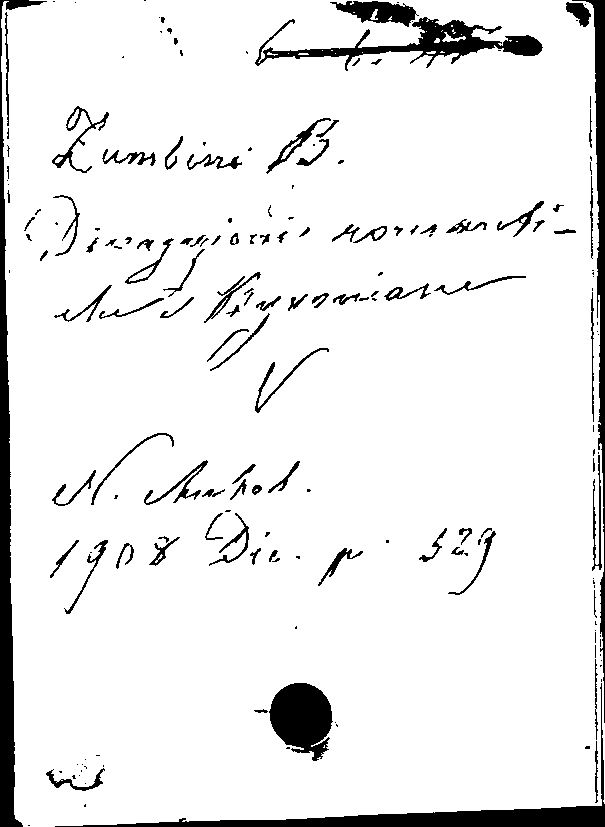 Zumbini B.
Divagazioni romanti-
che e Byroniane
V
N. Antol.
1908 Dic. p. 529